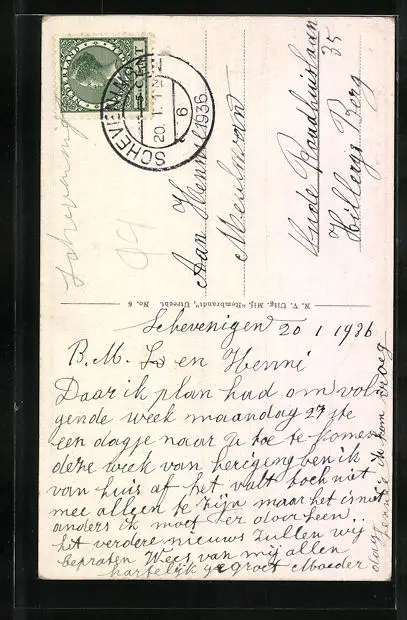 SCHEVENINGEN
20.I
6
1936
Scheveningen
Aan Henni
Meulman
Oude Raadhuislaan
35
Hillegs Berg
N. V. Uitg. Mij. "Rembrandt", Utrecht. No. 6
Schevenigen 20 1 1936
B. M. L en Henni
Daar ik plan had om vol
gende week maandag 27 ste
een dagje naar U toe te komen
deze week van ben ik
van huis af het valt toch niet
mee alleen te zijn maar het is niet
anders ik moet er door heen
het verdere nieuws zullen wij
bepraten Wees van mij allen
hartelijk gegroet Moeder
dag Henni ik kom vroeg